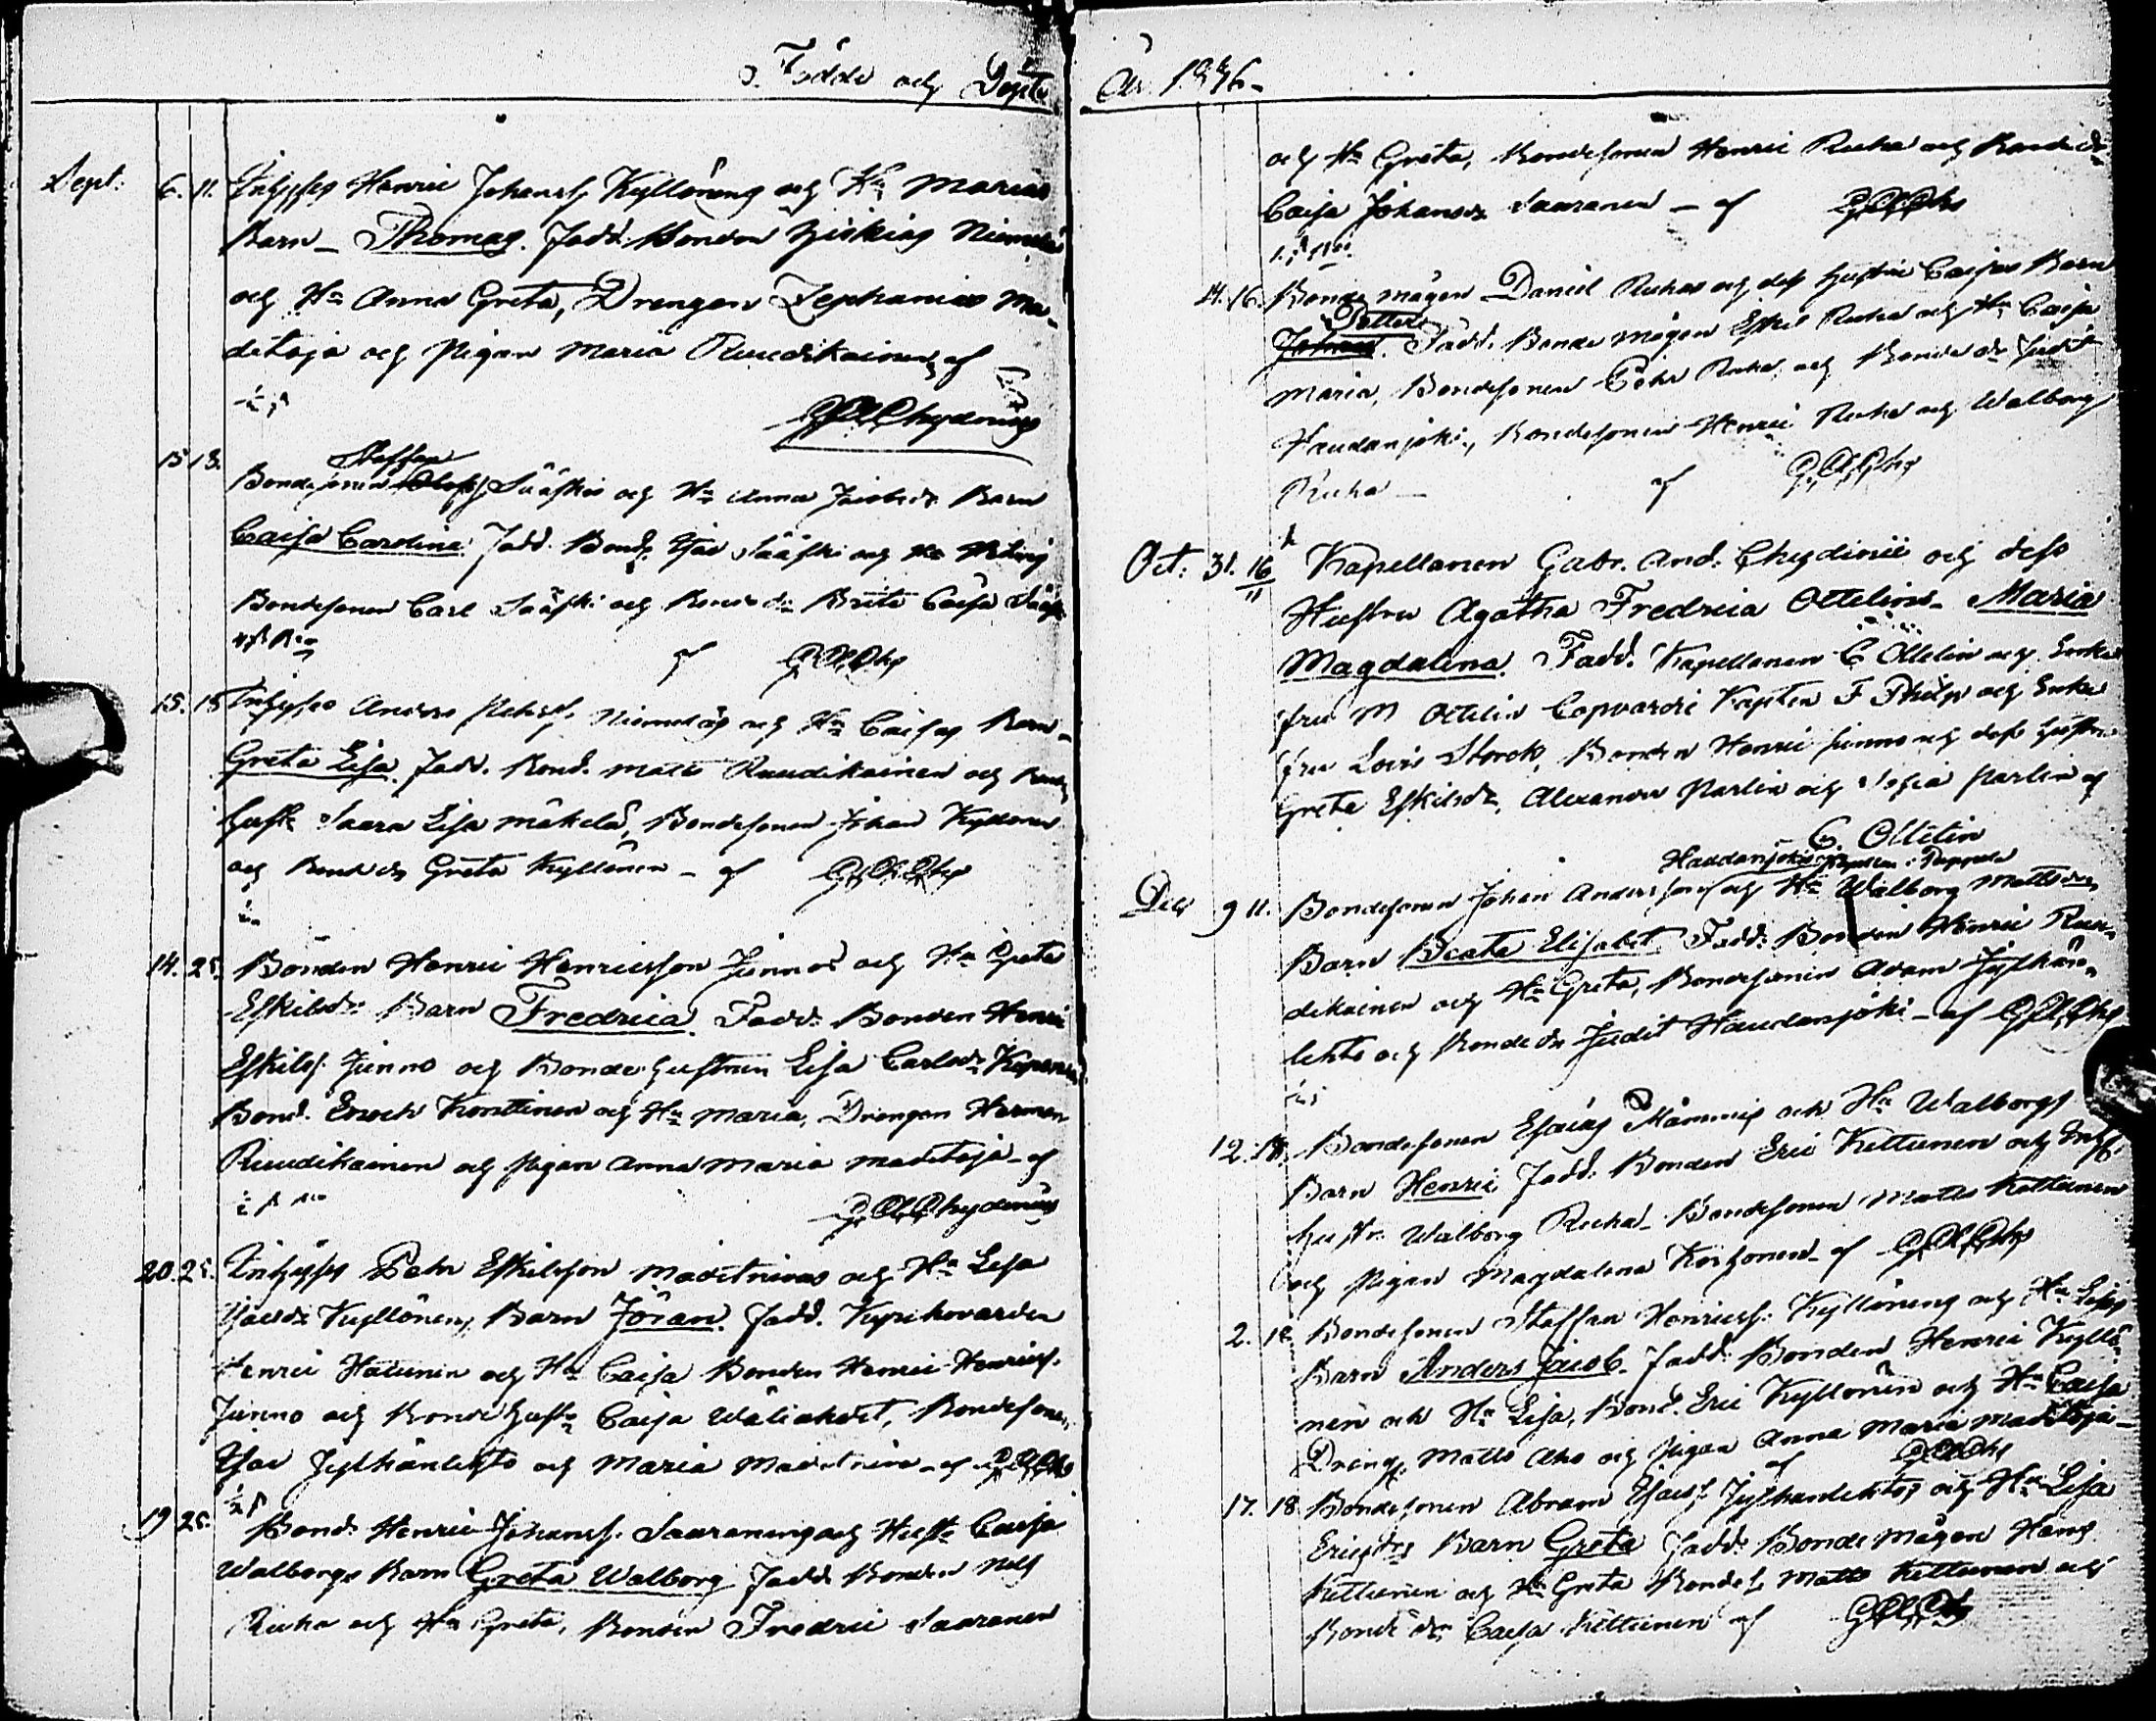 Födde och Döpte
Sept: 6. 11. Inhysses Henric Johanss. Kyllönens och Hu Marias
Barn – Thomas. Fadd. Bonden Niemelä
och Hu Anna Greta, Drengen Zephanias Ma-
detoja och Pigan Maria Ruudikainen, af
G A Chydenius
Staffan
15 18. Bondesonen Olofs Sääskis och Hu Anna Jacobsdr Barn
Caisa Carolina. Fadd. Bond. Isac Sääski och Hu
Bondesonen Carl Sääski och Bondedr Brita Caisa Sääski
af G A Chs
15. 18 Inhyses Anders Niemeläs och Hu Caisas Barn –
Greta Lisa. Fadd. Bond. Matts Ruudikainen och Bond
Hustr Saara Lisa Mäkelä, Bondesonen Johan Kyllönen
och Bondedr Greta Kyllönen – af G. A. Chs
14. 25. Bonden Henric Henricsson Junnos och Hu Greta
Eskilsdr Barn Fredrica. Fadd. Bonden Henric
Eskilss. Junno och Bondehustrun Lisa Carlsdr
Bond. Enoch Konttinen och Hu Maria, Drengen Herman
Ruudikainen och Pigan Anna Maria Madetoja – af
G. A. Chydenius
20. 25. Inhysses Pehr Eskilsson Madetnivas och Hu Lisa
Isacsdr Kyllönens Barn Jöran. Fadd. Kyrkovärden
Henric Hälinen och Hu Caisa Bonden Henric Henricss.
Junno och Bondehustr Caisa Wäliahdet, Bondesonen
Isac Jylhänlehto och Maria Madetniva – af G. A. Chs
19 25. Bond. Henric Johanss. Saaranens och Hustr Caisa
Walborgs Barn Greta Walborg Fadd. Bonden Nils
Ruha och Hu Greta, Bonden Fredric Saaranen
År 1846.
och Hu Greta, Bondesonen Henric Ruha och Bondedr
Caisa Johansdr Saaranen – af G A Chs
14. 16. Bondemågen Daniel Ruhas och dess Hustru Caisas Barn
Petter
Johan. Fadd. Bondemågen Eskil Ruha och Hu Caisa
Maria, Bondesonen Pehr Ruha och Bondedr Judit
Haudanjoki, Bondesonen Henric Ruha och Walborg
Ruha – af G. A. Chs
Oct: 31. 16/11 Kapellanen Gabr. And. Chydenii och dess
Hustru Agatha Fredrica Ottelins – Maria
Magdalena. Fadd. Kapellanen C Ottelin och Enke
fru M Ottelin Kapten F Philp och Enke
fru Lovis Storck, Bonden Henric Junno och dess Hustru
Greta Eskilsdr, Alexander Parlin och Sofia Parlin af
C. Ottelin
Haudanjokis
Dec 9 11. Bondesonen Johan Andersson och Hu Walborg Mattsdrs
Barn Beata Elisabet Fadd. Bonden Henric Ruu-
dikainen och Hu Greta, Bondesonen Adam Jylhän-
lehto och Bondedr Judit Haudanjoki – af G A Chs
12. 18. Bondesonen Esaias Mämmis och Hu Walborgs
Barn Henric Fadd. Bonden Eric Kettunen och Inhys
hustr. Walborg Ruha – Bondesonen Matts Kettunen
och Pigan Magdalena Korhonen – af G. A. Chs
2. 18. Bondesonen Staffan Henricss. Kyllönens och Hu Lisas
Barn Anders Jacob. Fadd. Bonden Henric Kyllö-
nen och Hu Lisa, Bond. Eric Kyllönen och Hu Caisa
Dreng. Matts Aho och Pigan Anna Maria Madetoja –
af G A Chs
17. 18 Bondesonen Abram Isacss. Jylhänlehtos och Hu Lisa
Ericsdrs Barn Greta Fadd. Bondemågen Hans
Kettunen och Hu Greta Bondes. Matts Kettunen och
Bondedr. Caisa Kettunen af G A Chs